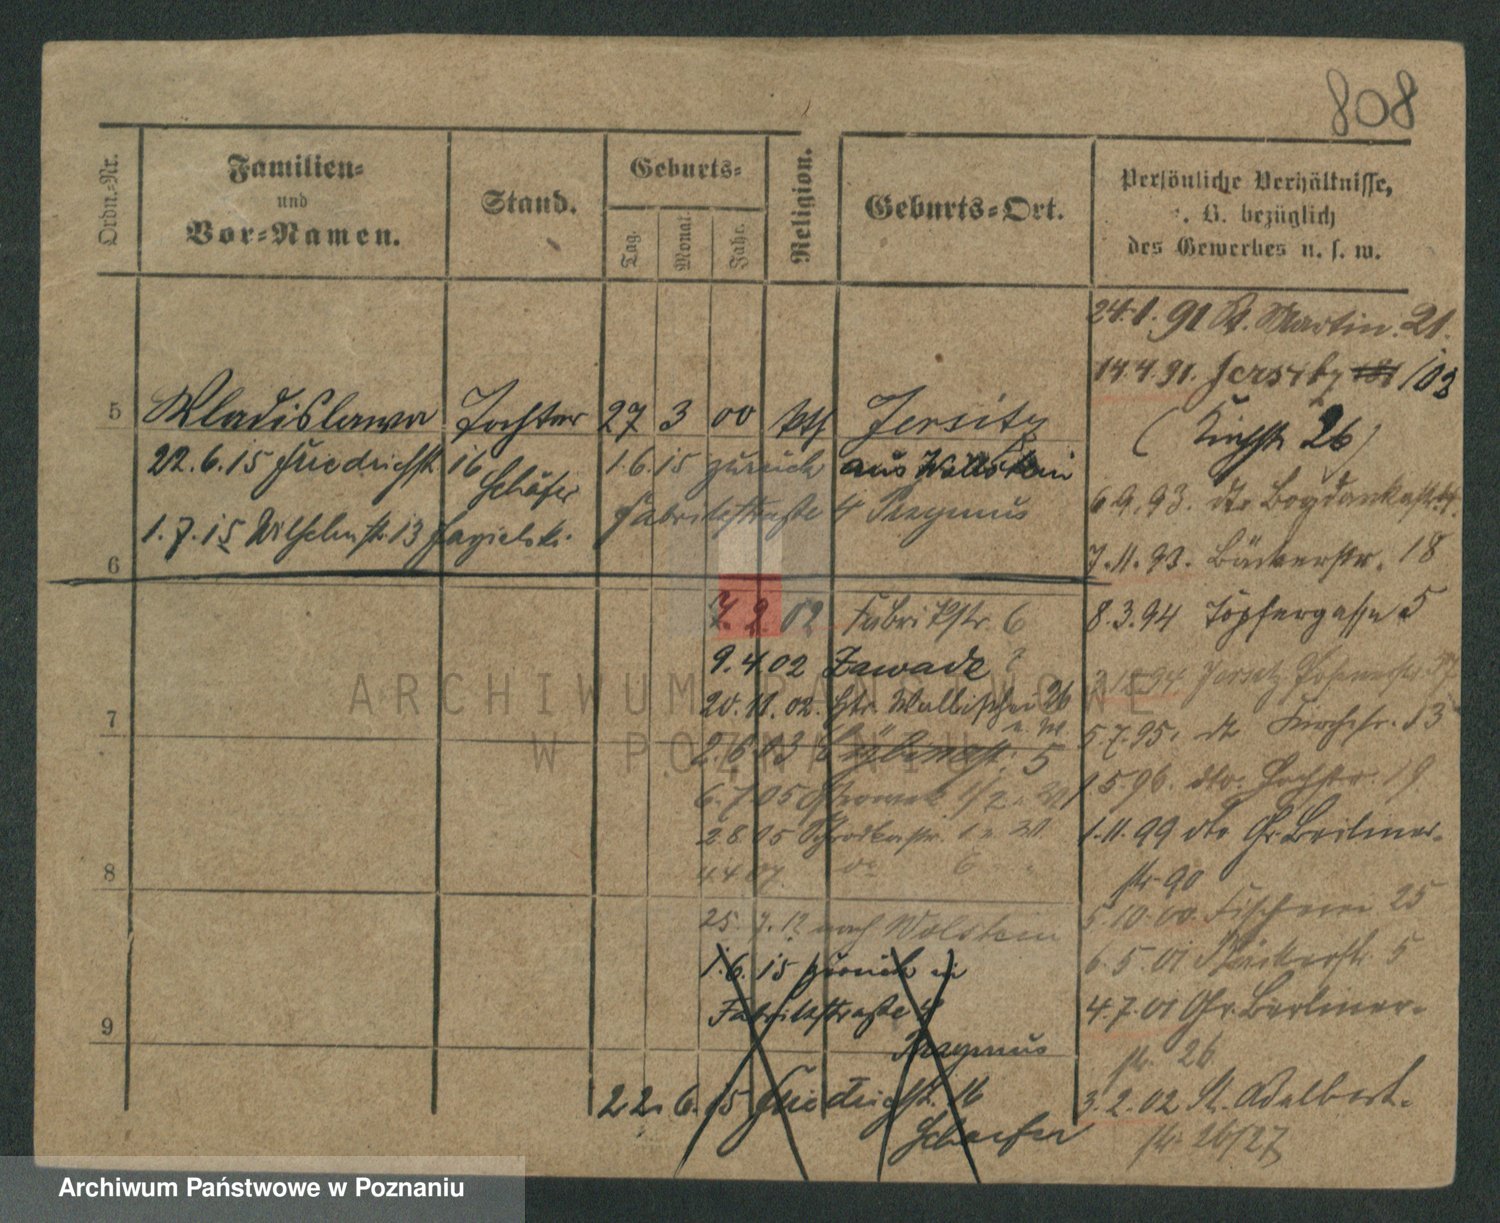 808
Ordn.-Nr.
Familien-
und
Vor-Namen.
Stand.
Geburts-
Tag.
Monat.
Jahr.
Religion.
Geburts-Ort.
Persönliche Verhältnisse,
z. B. bezüglich
des Gewerbes u. s. w.
24.1.91 St. Martin. 21.
14.4.91. Jersitz 103
5 Wladislawa Tochter 27 3 00 kth Jersitz
(Kirchstr 26)
22.6.15 Friedrichstr. 16 1.6.15 zurück aus Wollstein
Schäfer
6.9.93. dto Bogdankastr.
Fabrikstraße 4
1.7.15 Wilhelmstr. 13 Jagielski
7.11.93. Bäckerstr. 18
6
7.2.02 Fabrikstr. 6
8.3.94 Töpfergasse 5
9.4.02 Zawade
20.11.02. Wallischei
7
5.7.95. dto Kirchstr. 13
2.6.03 5
1.5.96. dto. 19
6.7.05 Ostrowek
2.8.05
1.11.99 dto Gr. Berliner-
str. 90
8 4.4.07. do 6
5.10.00. Fischerei 25
25.7.12 nach Wolstein
6.5.01 Bäckerstr. 5
1.6.15 zurück in
Fabrikstraße 4
4.7.01 Gr. Berliner-
9
str. 26
22.6.15 Friedrichstr. 16
3.2.02 St. Adalbert-
Schaefer
str. 26/27
ARCHIWUM PAŃSTWOWE
W POZNANIU
Archiwum Państwowe w Poznaniu